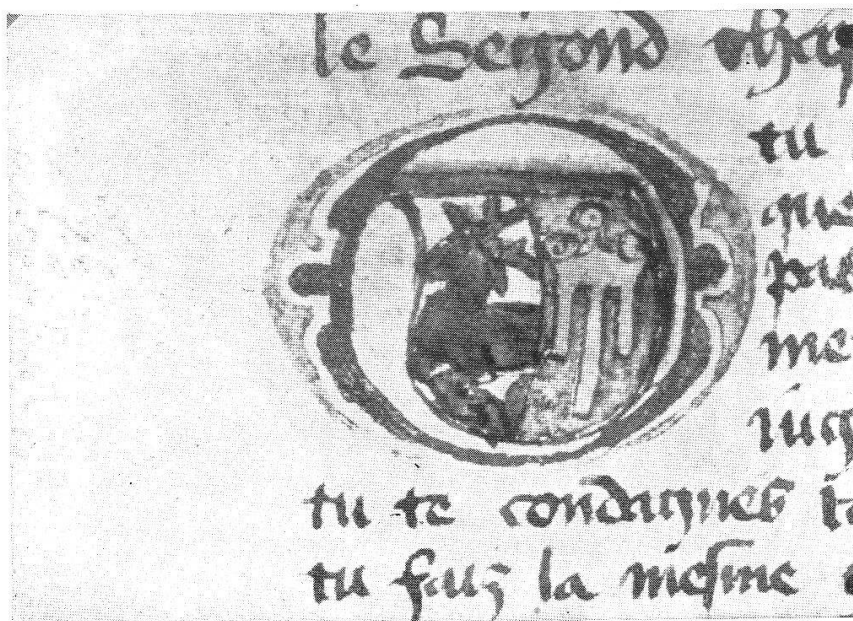 le Segond chap
tu
que
par
me
iug
tu te condagnes
tu faiz la mesme